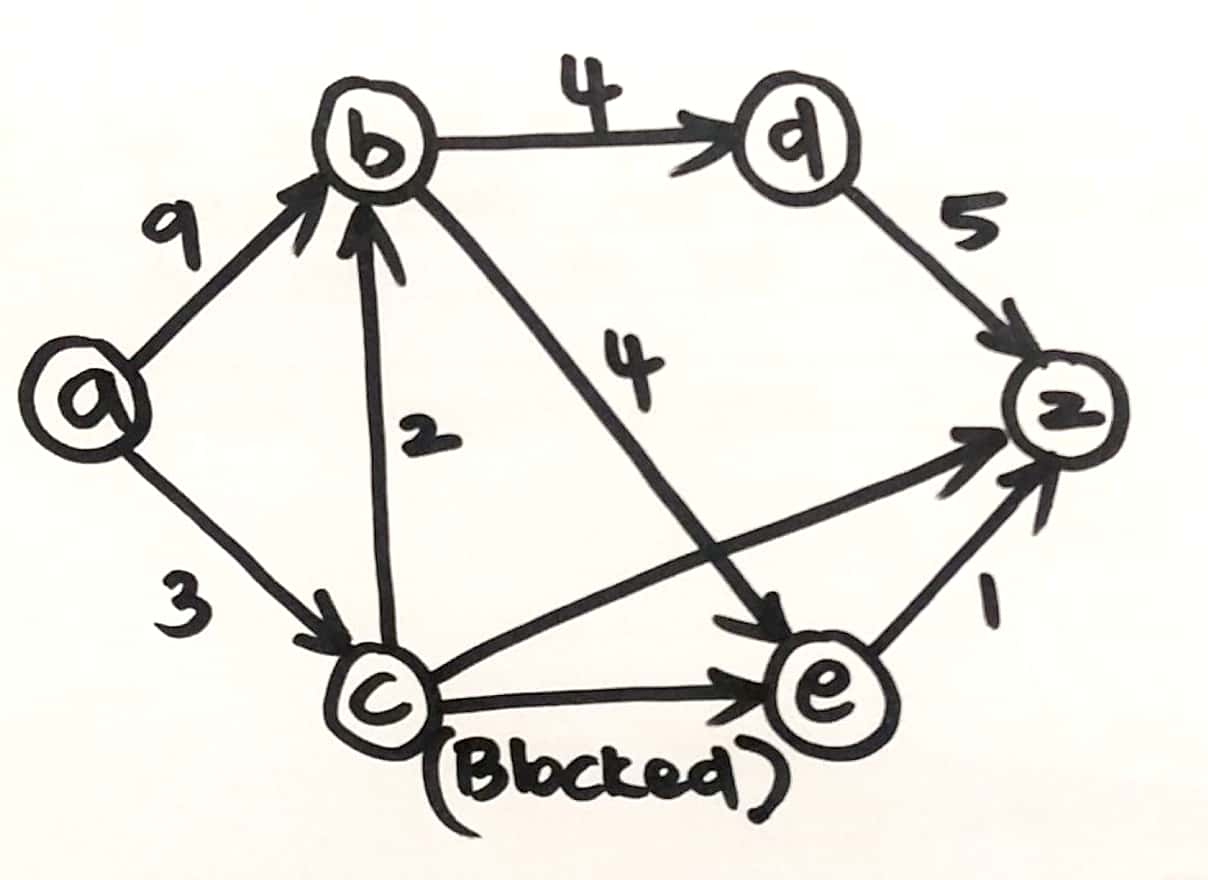 4
b
d
9
5
4
a
z
2
3
1
c
e
(Blocked)